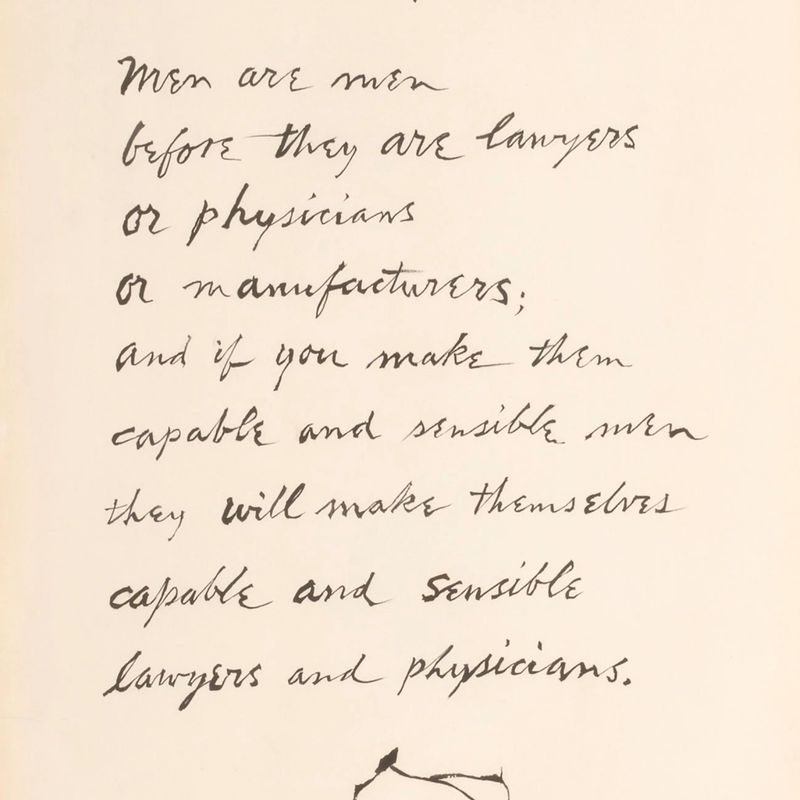 Men are men
before they are lawyers
or physicians
or manufacturers;
and if you make them
capable and sensible men
they will make themselves
capable and sensible
lawyers and physicians.